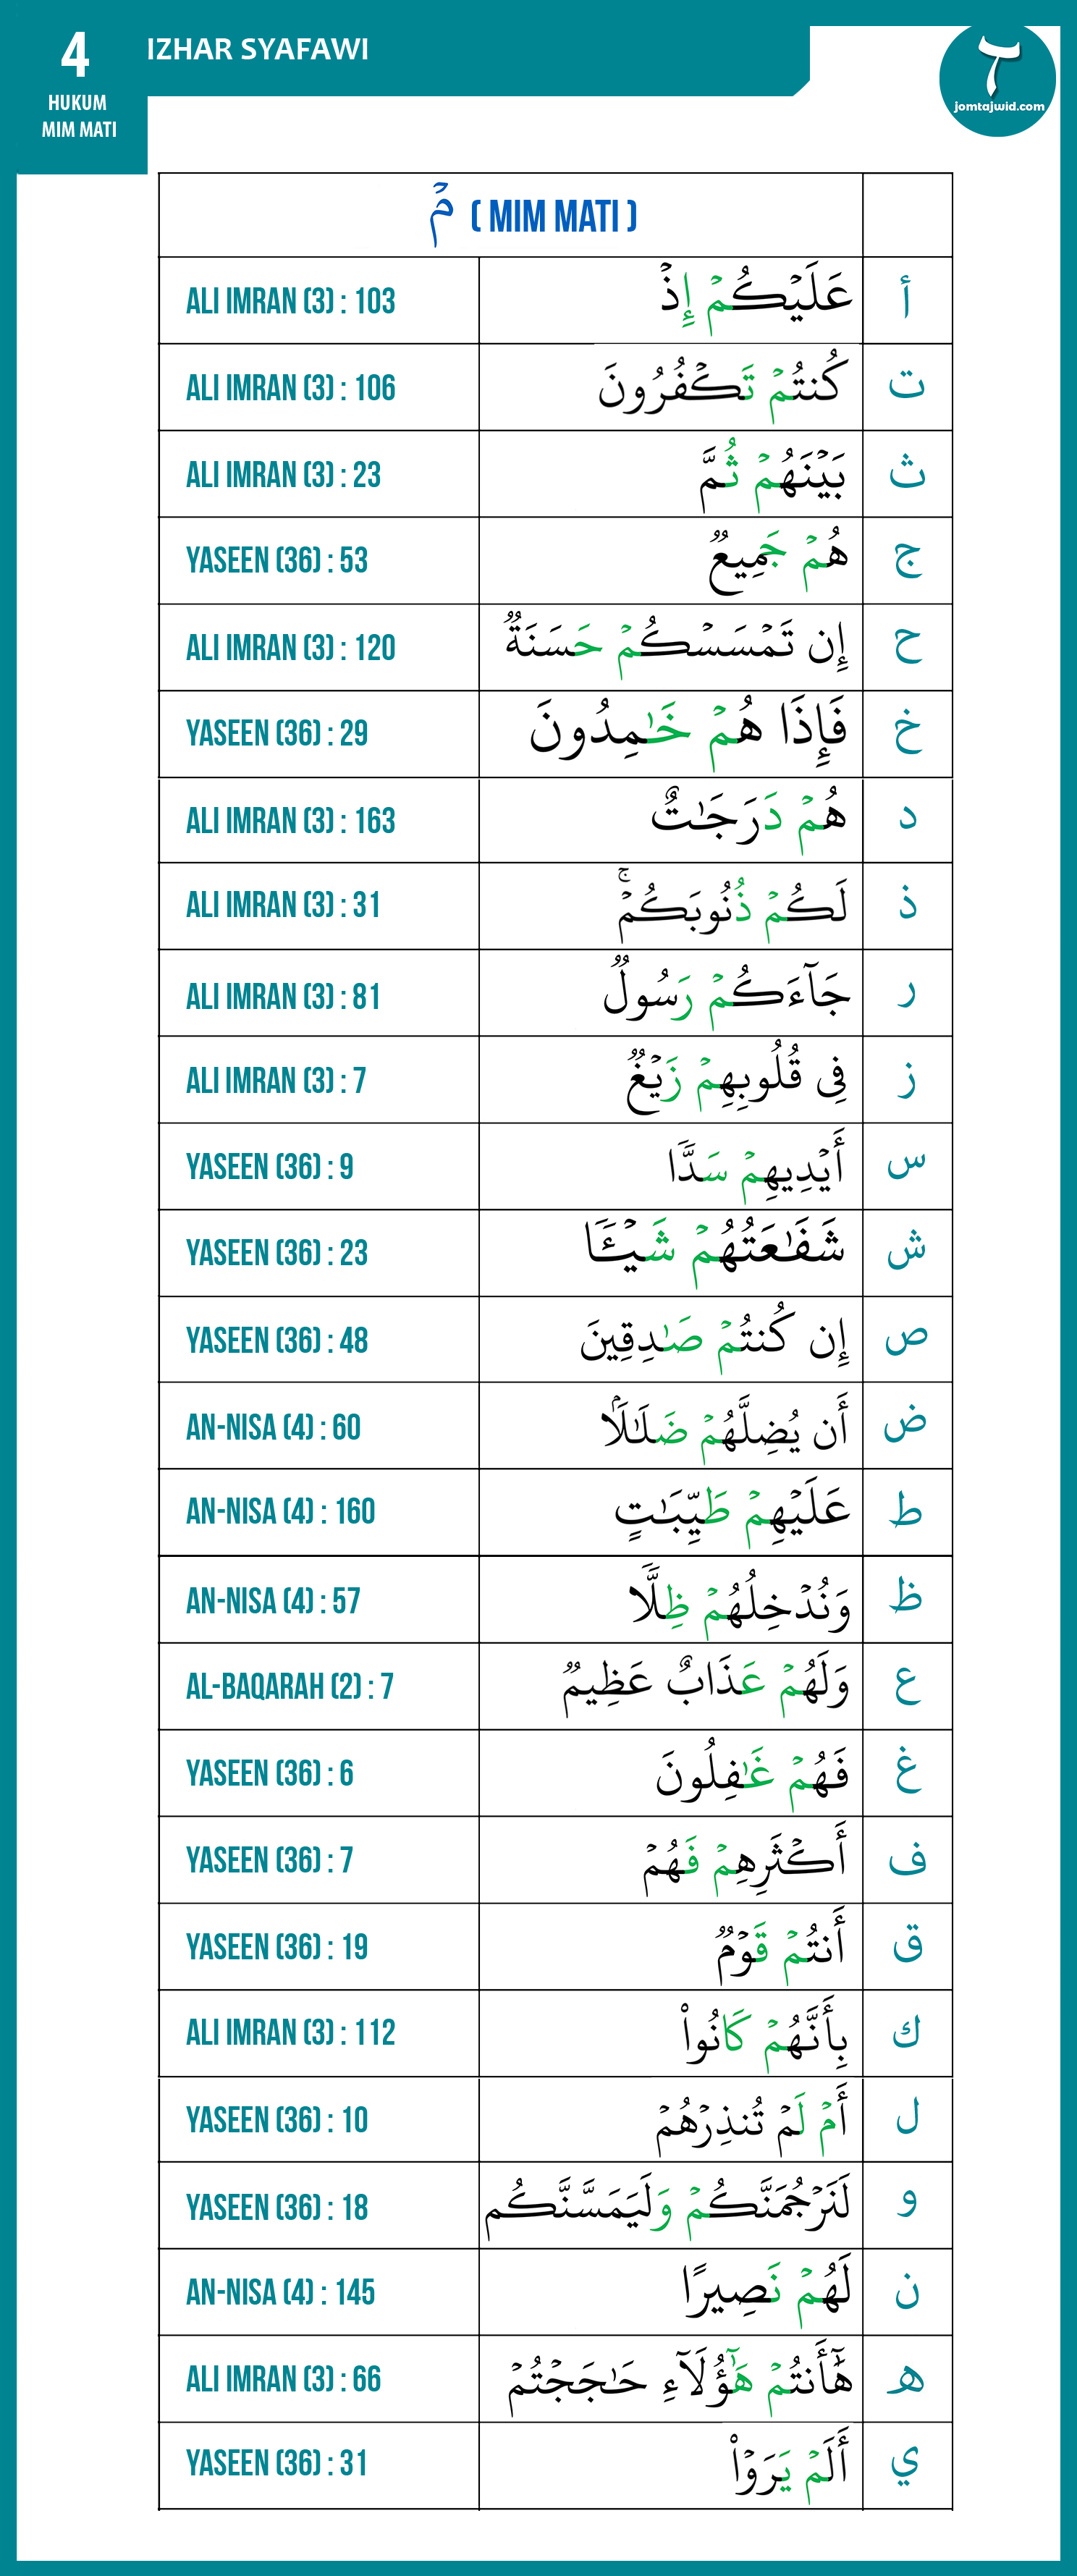 4
HUKUM
MIM MATI
IZHAR SYAFAWI
jomtajwid.com
مْ ( MIM MATI )
ALI IMRAN (3) : 103 عَلَيْكُمْ إِذْ أ
ALI IMRAN (3) : 106 كُنتُمْ تَكْفُرُونَ ت
ALI IMRAN (3) : 23 بَيْنَهُمْ ثُمَّ ث
YASEEN (36) : 53 هُمْ جَمِيعٌ ج
ALI IMRAN (3) : 120 إِن تَمْسَسْكُمْ حَسَنَةٌ ح
YASEEN (36) : 29 فَإِذَا هُمْ خَٰمِدُونَ خ
ALI IMRAN (3) : 163 هُمْ دَرَجَٰتٌ د
ALI IMRAN (3) : 31 لَكُمْ ذُنُوبَكُمْۚ ذ
ALI IMRAN (3) : 81 جَآءَكُمْ رَسُولٌ ر
ALI IMRAN (3) : 7 فِى قُلُوبِهِمْ زَيْغٌ ز
YASEEN (36) : 9 أَيْدِيهِمْ سَدًّا س
YASEEN (36) : 23 شَفَٰعَتُهُمْ شَيْـًٔا ش
YASEEN (36) : 48 إِن كُنتُمْ صَٰدِقِينَ ص
AN-NISA (4) : 60 أَن يُضِلَّهُمْ ضَلَٰلًۢا ض
AN-NISA (4) : 160 عَلَيْهِمْ طَيِّبَٰتٍ ط
AN-NISA (4) : 57 وَنُدْخِلُهُمْ ظِلًّا ظ
AL-BAQARAH (2) : 7 وَلَهُمْ عَذَابٌ عَظِيمٌ ع
YASEEN (36) : 6 فَهُمْ غَٰفِلُونَ غ
YASEEN (36) : 7 أَكْثَرِهِمْ فَهُمْ ف
YASEEN (36) : 19 أَنتُمْ قَوْمٌ ق
ALI IMRAN (3) : 112 بِأَنَّهُمْ كَانُوا۟ ك
YASEEN (36) : 10 أَمْ لَمْ تُنذِرْهُمْ ل
YASEEN (36) : 18 لَنَرْجُمَنَّكُمْ وَلَيَمَسَّنَّكُم و
AN-NISA (4) : 145 لَهُمْ نَصِيرًا ن
ALI IMRAN (3) : 66 هَٰٓأَنتُمْ هَٰٓؤُلَآءِ حَٰجَجْتُمْ ه
YASEEN (36) : 31 أَلَمْ يَرَوْا۟ ي